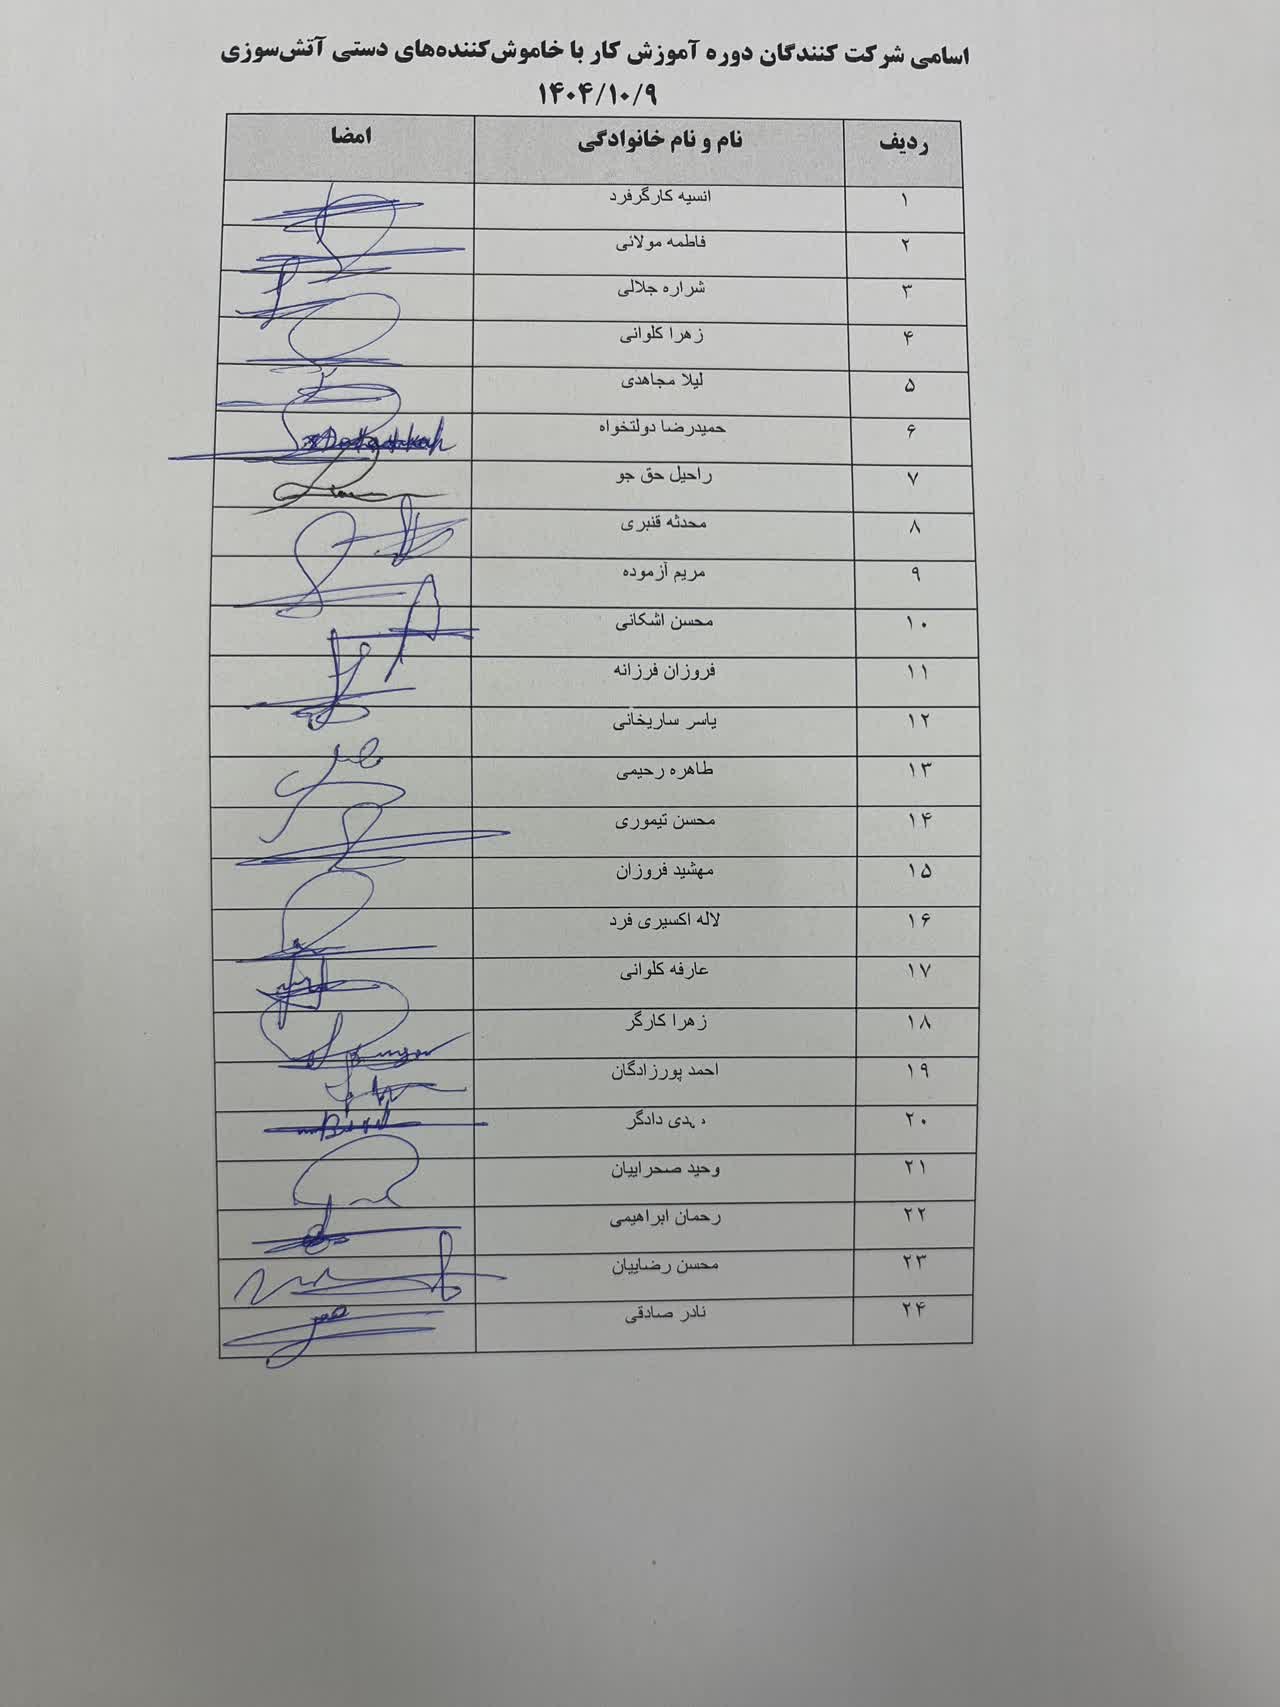 اسامی شرکت کنندگان دوره آموزش کار با خاموش‌کننده‌های دستی آتش‌سوزی
۱۴۰۴/۱۰/۹
ردیف نام و نام خانوادگی امضا
۱ انسیه کارگرفرد
۲ فاطمه مولائی
۳ شراره جلالی
۴ زهرا کلوانی
۵ لیلا مجاهدی
۶ حمیدرضا دولتخواه
۷ راحیل حق جو
۸ محدثه قنبری
۹ مریم آزموده
۱۰ محسن اشکانی
۱۱ فروزان فرزانه
۱۲ یاسر ساریخانی
۱۳ طاهره رحیمی
۱۴ محسن تیموری
۱۵ مهشید فروزان
۱۶ لاله اکسیری فرد
۱۷ عارفه کلوانی
۱۸ زهرا کارگر
۱۹ احمد پورزادگان
۲۰ دادگر
۲۱ وحید صحراییان
۲۲ رحمان ابراهیمی
۲۳ محسن رضاییان
۲۴ نادر صادقی